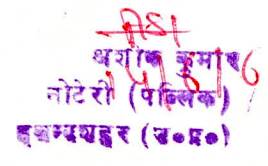 अशोक कुमार
नोटेरी (पब्लिक)
बुलन्दशहर (उ०प्र०)